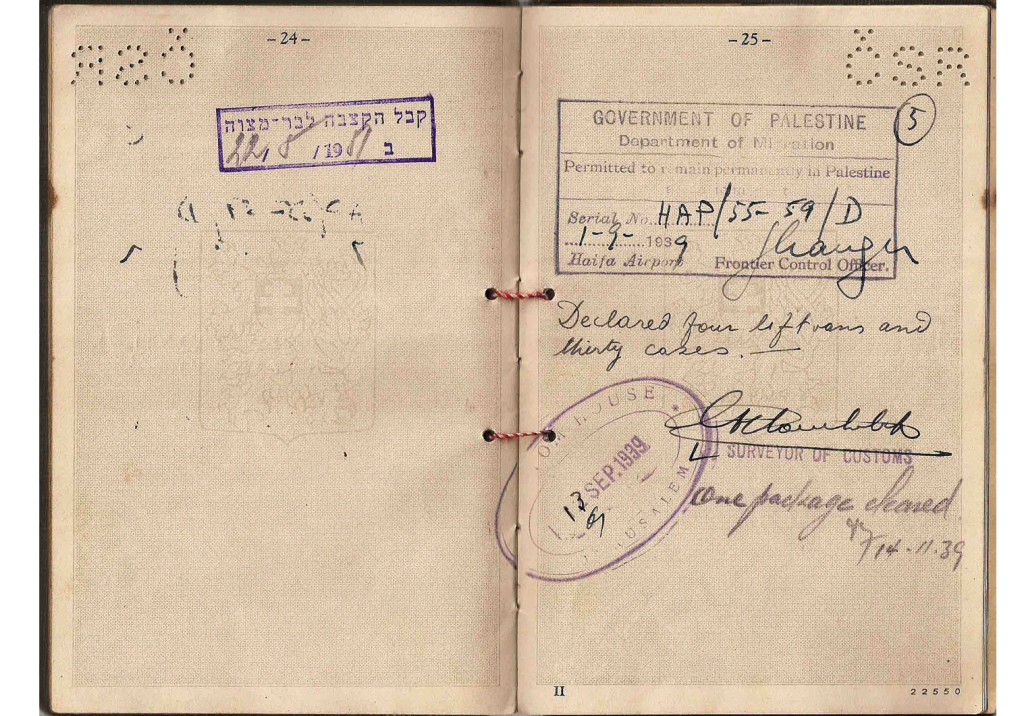 -24-
ČSR
קבל הקצבה לבר-מצוה
ב 22/ 8 /1951
-25-
ČSR
5
GOVERNMENT OF PALESTINE
Department of Migration
Permitted to remain permanently in Palestine
Serial No. HAP/55-59/D
1-9- 1939
Haifa Airport Frontier Control Officer.
Declared four lift vans and
thirty cases.
HOUSE
13 SEP. 1939
JERUSALEM
SURVEYOR OF CUSTOMS
one package cleared
14-11-39
II
22550